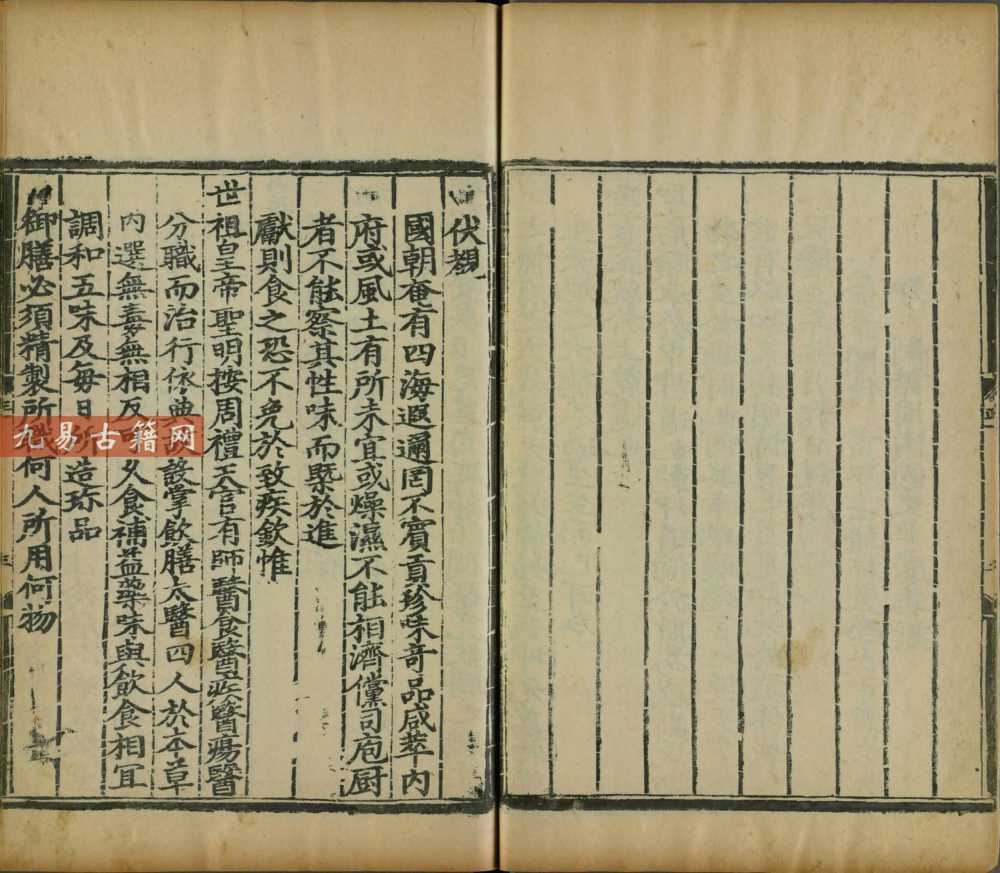 伏覩
國朝奄有四海遐邇罔不賓貢珍味竒品咸萃内
府或風土有所未宜或燥濕不能相濟儻司庖厨
者不能察其性味而槩於進
獻則食之恐不免於致疾欽惟
世祖皇帝聖明按周禮天官有師醫食醫疾醫瘍醫
分職而治行依典故設掌飲膳太醫四人於本草
内選無毒無相反可久食補益藥味與飲食相宜
調和五味及每日所造珎品
御膳必須精製所職何人所用何物
九易古籍网